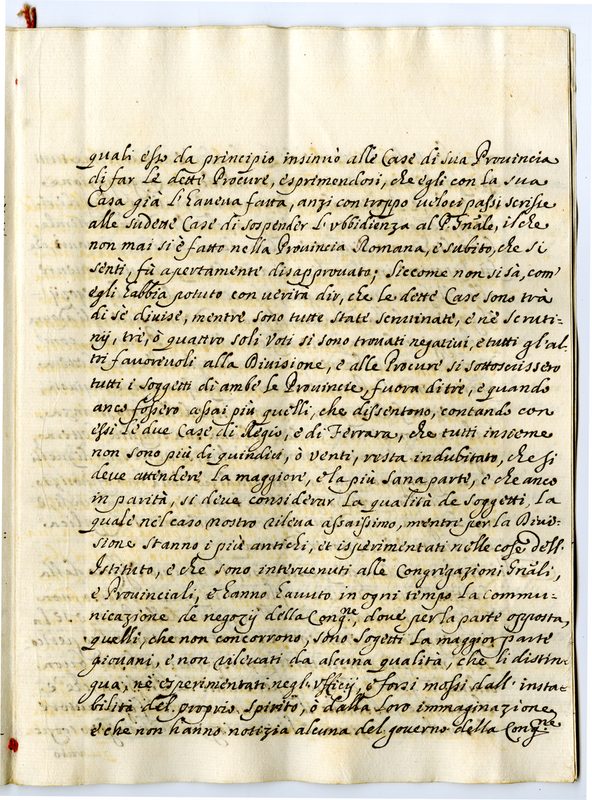 quali esso da principio insinuò alle Case di sua Provincia
di far le dette Procure, esprimendosi, che egli con la sua
Casa già l'haueua fatta, anzi con troppo ueloci passi scrisse
alle sudette Case di sospender l'vbbidienza al P. Gnãle, il che
non mai si è fatto nella Provincia Romana, e subito, che si
sentì, fù apertamente disapprouato; siccome non si sà, com'
egli habbia potuto con uerità dir, che le dette Case sono trà
di se diuise, mentre sono tutte state scrutinate, e nè scruti=
nij, trè, ò quattro soli uoti si sono trouati negatiui, e tutti gl'al=
tri fauoreuoli alla Diuisione, e alle Procure si sottoscrissero
tutti i soggetti di ambe le Prouincie, fuora di trè, e quando
anco fossero assai più quelli, che dissentono, contando con
essi le due Case di Regio, e di Ferrara, che tutti insieme
non sono più di quindici, ò venti, resta indubitato, che si
deue attendere la maggiore, e la più sana parte, e che anco
in parità, si deue considerar la qualità de soggetti, la
quale nel caso nostro rileua assaissimo, mentre per la Diui=
sione stanno i più antichi, et isperimentati nelle cose dell'
Istituto, e che sono interuenuti alle Congregazioni Gnãli,
e Prouinciali, e hanno hauuto in ogni tempo la commu=
nicazione de negozij della Congne, doue per la parte opposta,
quelli, che non concorrono, sono sogetti la maggior parte
giouani, e non rileuati da alcuna qualità, che li distin=
gua, nè esperimentati negl'vfficij, e forsi mossi dall'insta=
bilità del proprio spirito, ò dalla loro immaginazione,
e che non hanno notizia alcuna del gouerno della Congne